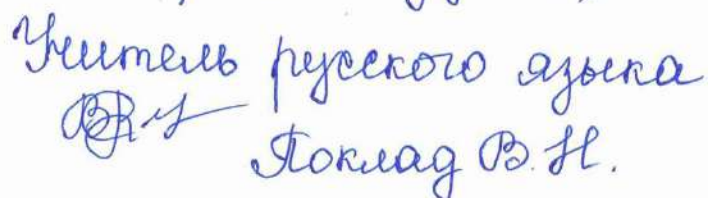 Учитель русского языка
Поклад В.Н.